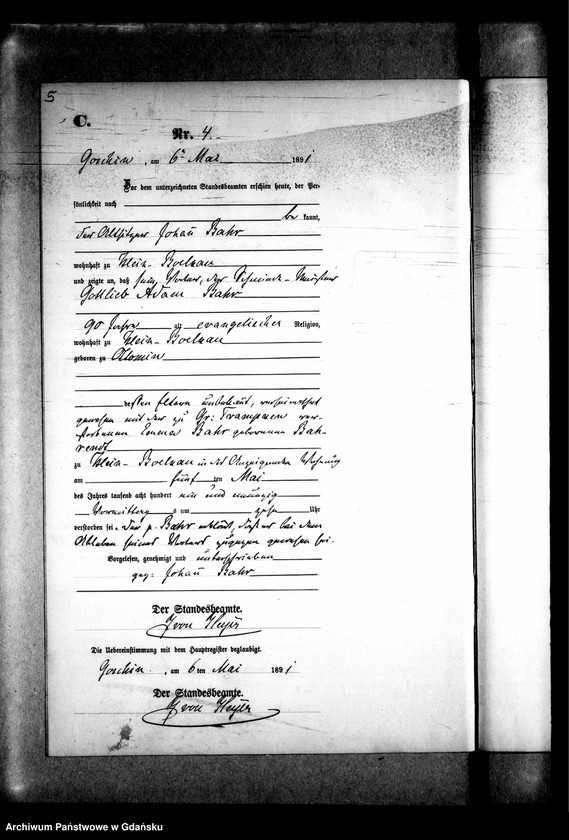 5
C.
Nr. 4.
Goschin, am 6ten Mai 1891
Vor dem unterzeichneten Standesbeamten erschien heute, der Per-
sönlichkeit nach
be kannt,
der Altsitzer Johañ Bahr
wohnhaft zu Klein-Boelkau
und zeigte an, daß sein Vater, der Schmiede-Meister
Gottlieb Adam Bahr
90 Jahre alt, evangelischer Religion,
wohnhaft zu Klein-Boelkau
geboren zu
dessen Eltern unbekannt, verheirathet
gewesen mit der zu Gr: Trampken ver-
storbenen Bahr geborenen Bah-
rendt
zu Klein-Boelkau in des Anzeigenden Wohnung
am fünf ten Mai
des Jahres tausend acht hundert ein und neunzig
Vormittags um zehn Uhr
verstorben sei. Der p. Bahr erklärt, daß er bei dem
Ableben seines Vaters zugegen gewesen sei.
Vorgelesen, genehmigt und unterschrieben
gez: Johañ Bahr
Der Standesbeamte.
von Heyer
Die Uebereinstimmung mit dem Hauptregister beglaubigt.
Goschin, am 6 ten Mai 1891
Der Standesbeamte.
von Heyer
Archiwum Państwowe w Gdańsku